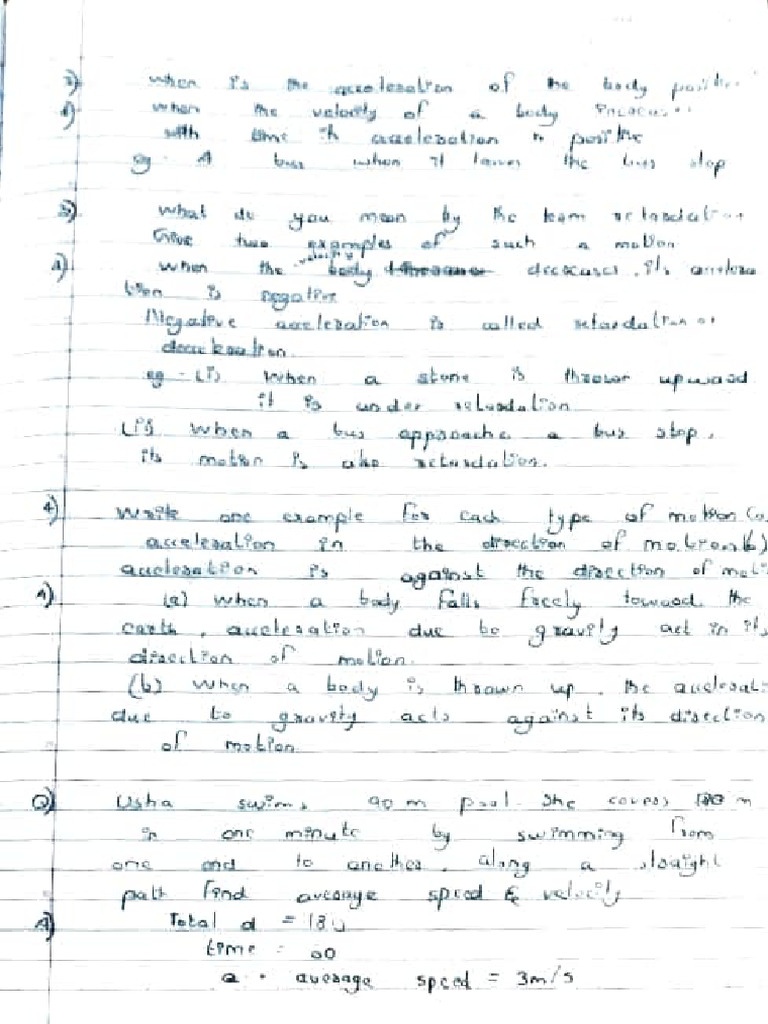 2) when is the acceleration of the body positive
A) when the velocity of a body increases
with time its acceleration is positive
eg - A bus when it leaves the bus stop
3) what do you mean by the team retardation
Give two examples of such a motion
velocity
A) when the body decreases, its accelera
tion is negative
Negative acceleration is called retardation or
deceleration.
eg - (i) when a stone is thrown upward
it is under retardation
(ii) when a bus approache a bus stop,
its motion is also retardation.
4) Write one example for each type of motion (a)
acceleration in the direction of motion (b)
acceleration is against the direction of moti
A) (a) when a body falls freely toward the
earth, acceleration due to gravity act in its
direction of motion.
(b) when a body is thrown up, the accelerati
due to gravity acts against its direction
of motion
Q) Usha swims 90 m pool. She covers m
in one minute by swimming from
one end to another, along a straight
path find average speed & velocity
A) Total d = 180
time =
average speed = 3m/s